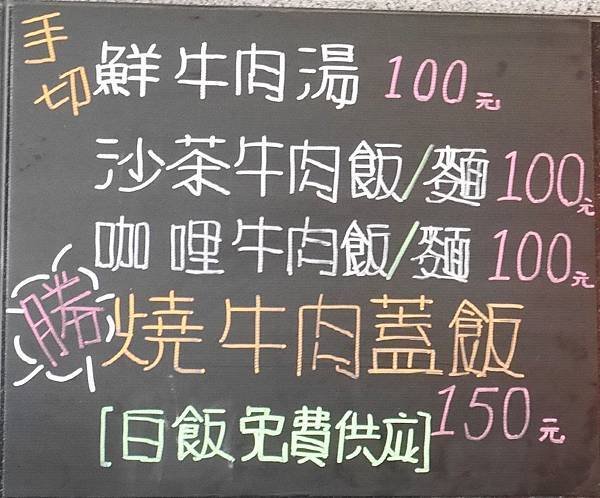 手切鮮牛肉湯 100元
沙茶牛肉飯/麵 100元
咖哩牛肉飯/麵 100元
勝 燒牛肉蓋飯 150元
[白飯免費供应]